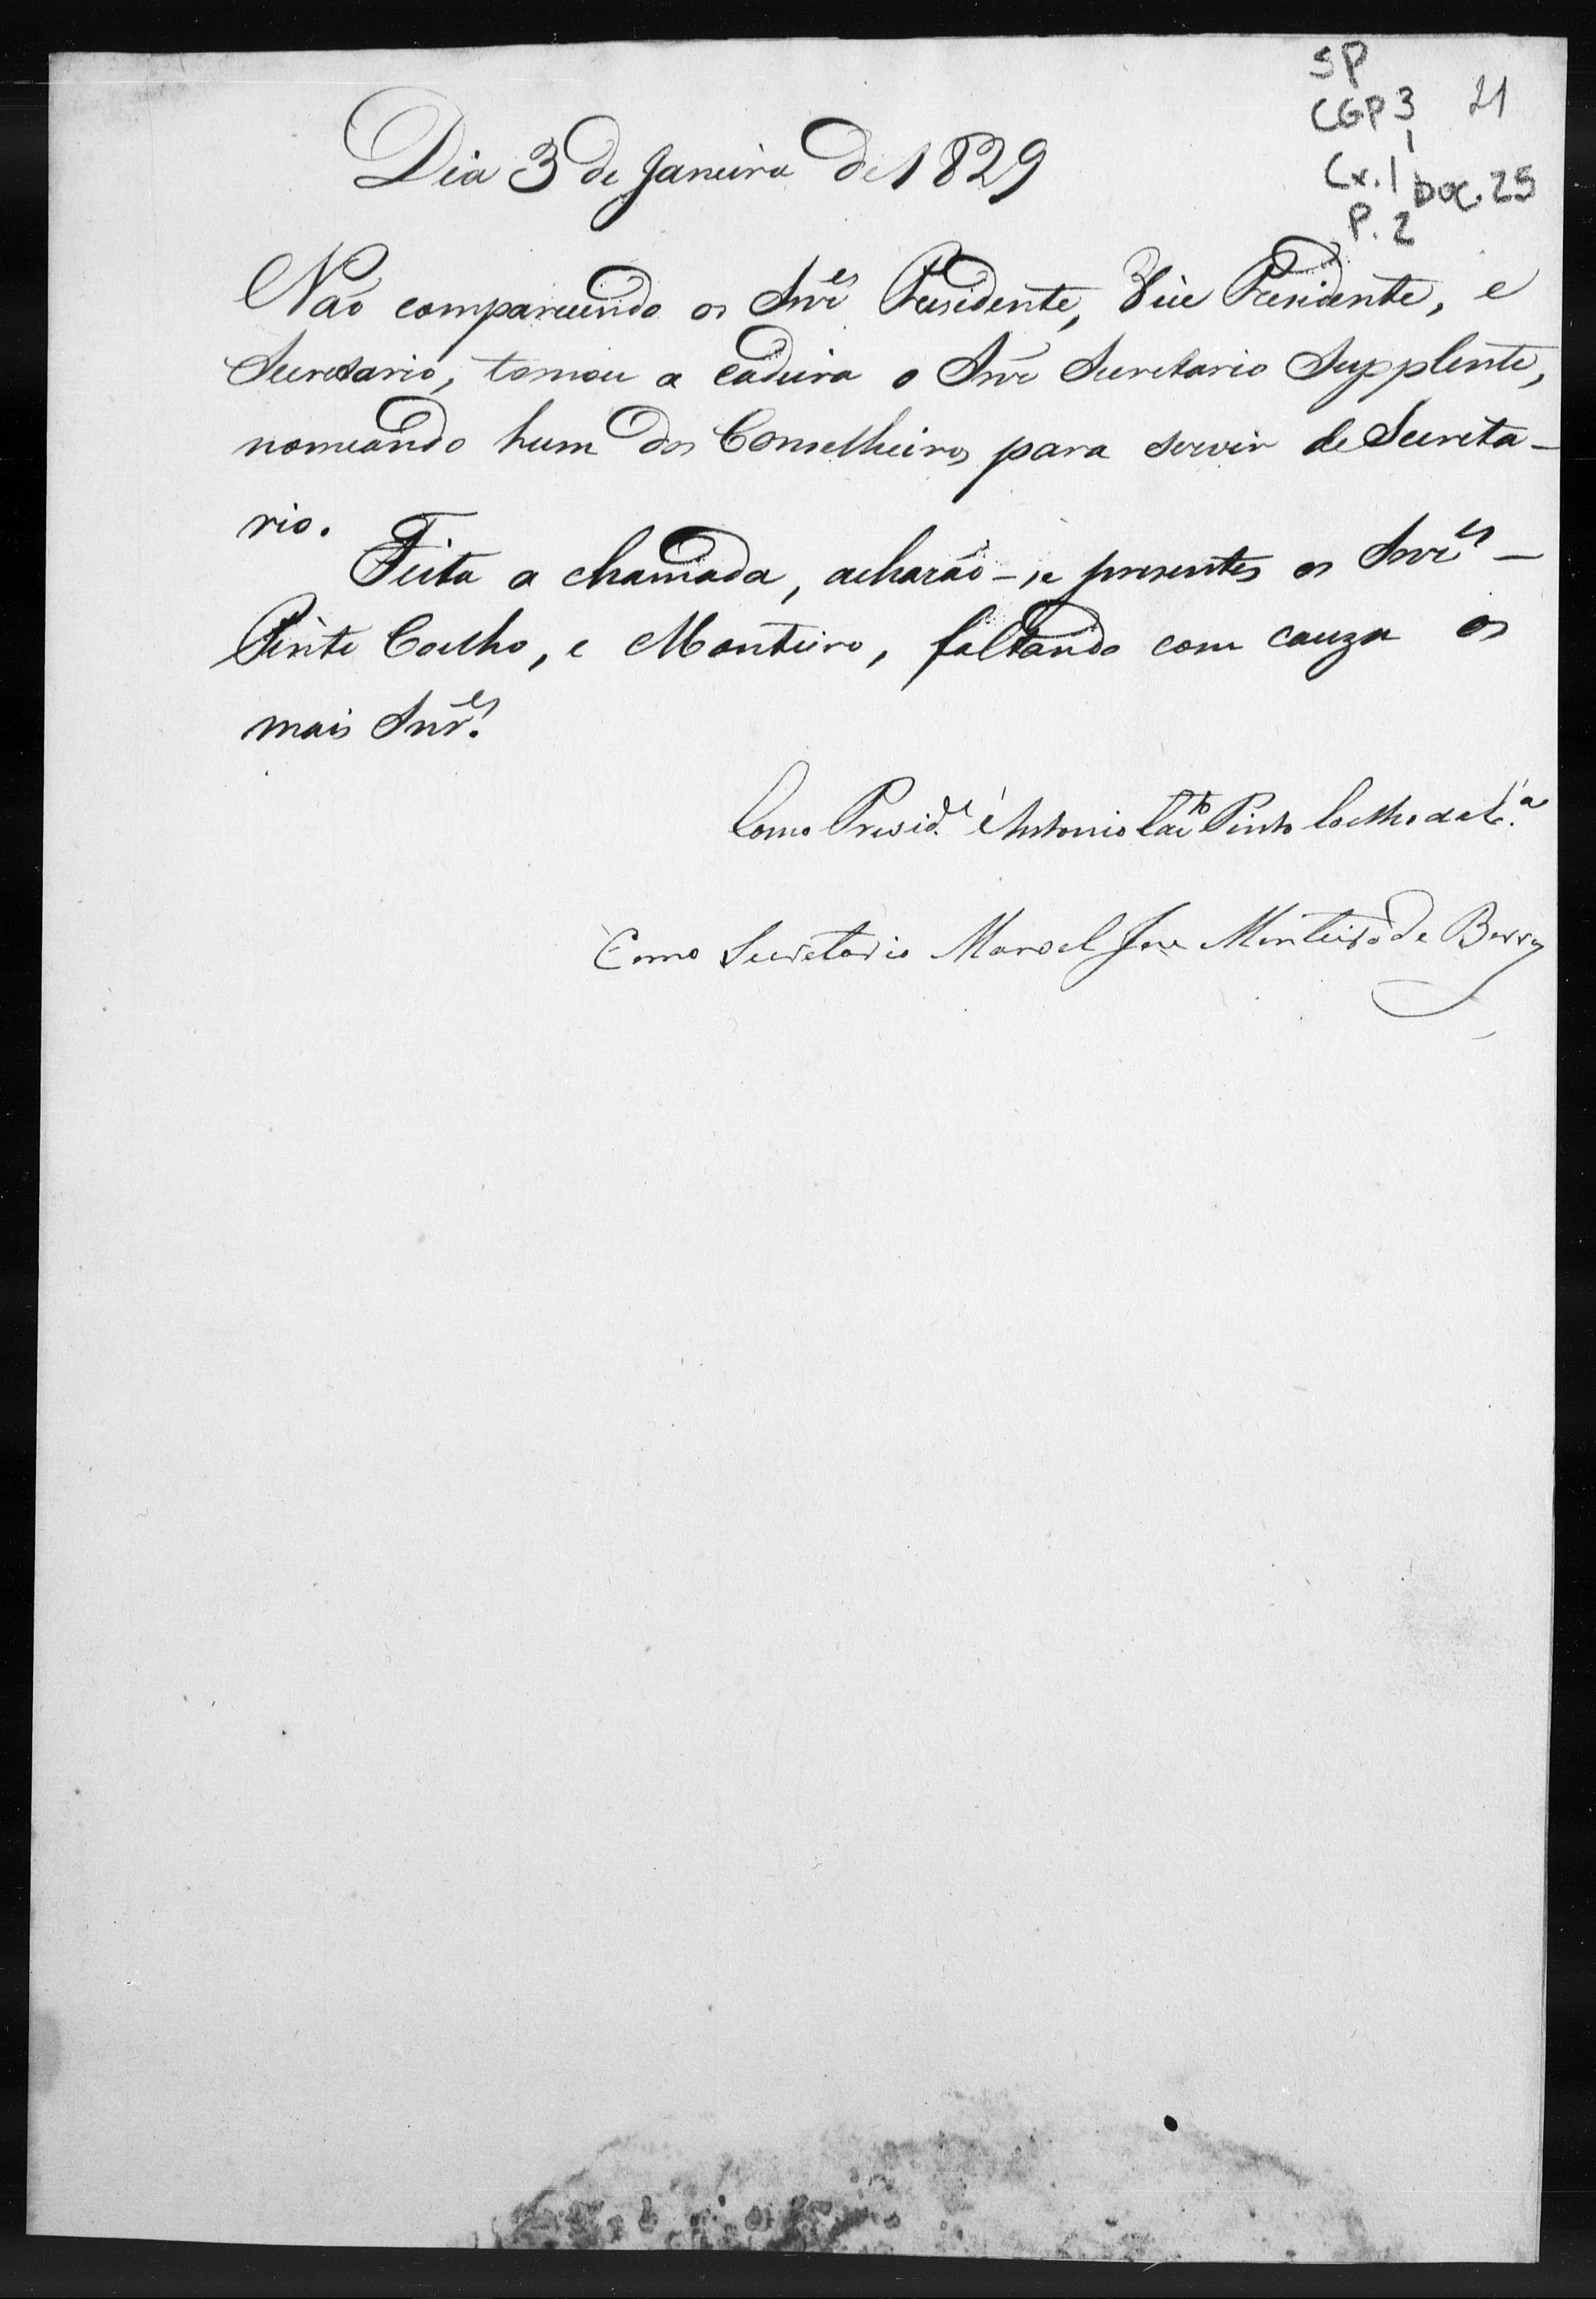 SP
CGP 3 21
Cx. 1 Doc. 25
P. 2
Dia 3 de Janeiro de 1829
Não comparecendo os Snr.es Presidente, Vice Presidente, e
Secretario, tomou a cadeira o Snr Secretario Supplente,
nomeando hum dos Conselheiros para servir de Secreta-
rio.
Feita a chamada, acharão-se presentes os Snr.es -
Pinto Coelho, e Monteiro, faltando com cauza os
mais Snr.es
Como Presid.e Antonio Cae.to Pinto Coelho da C.a
Como Secretario Manoel Joze Monteiro de Barros